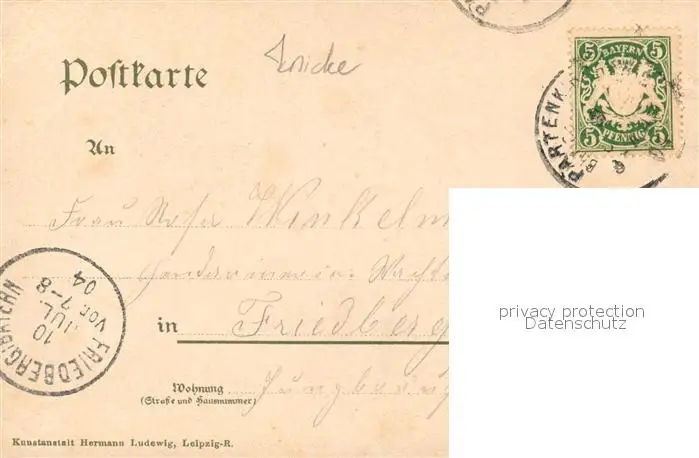 Postkarte
Zwicke
5 BAYERN 5
5 PFENNIG 5
PARTENK
An
Frau Rosa Winkelm
in Friedberg
FRIEDBERG(BAYERN
10 JUL.
VOR. 7-8
04
privacy protection
Datenschutz
Wohnung
(Straße und Hausnummer)
Kunstanstalt Hermann Ludewig, Leipzig-R.